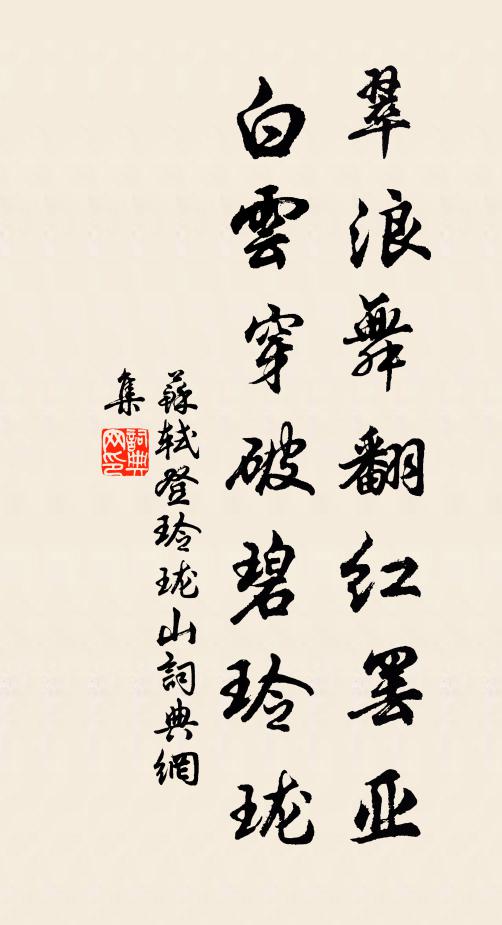 翠浪舞翻红罢亚
白雲穿破碧玲珑
蘇轼登玲珑山詞典網
集
詞典网印